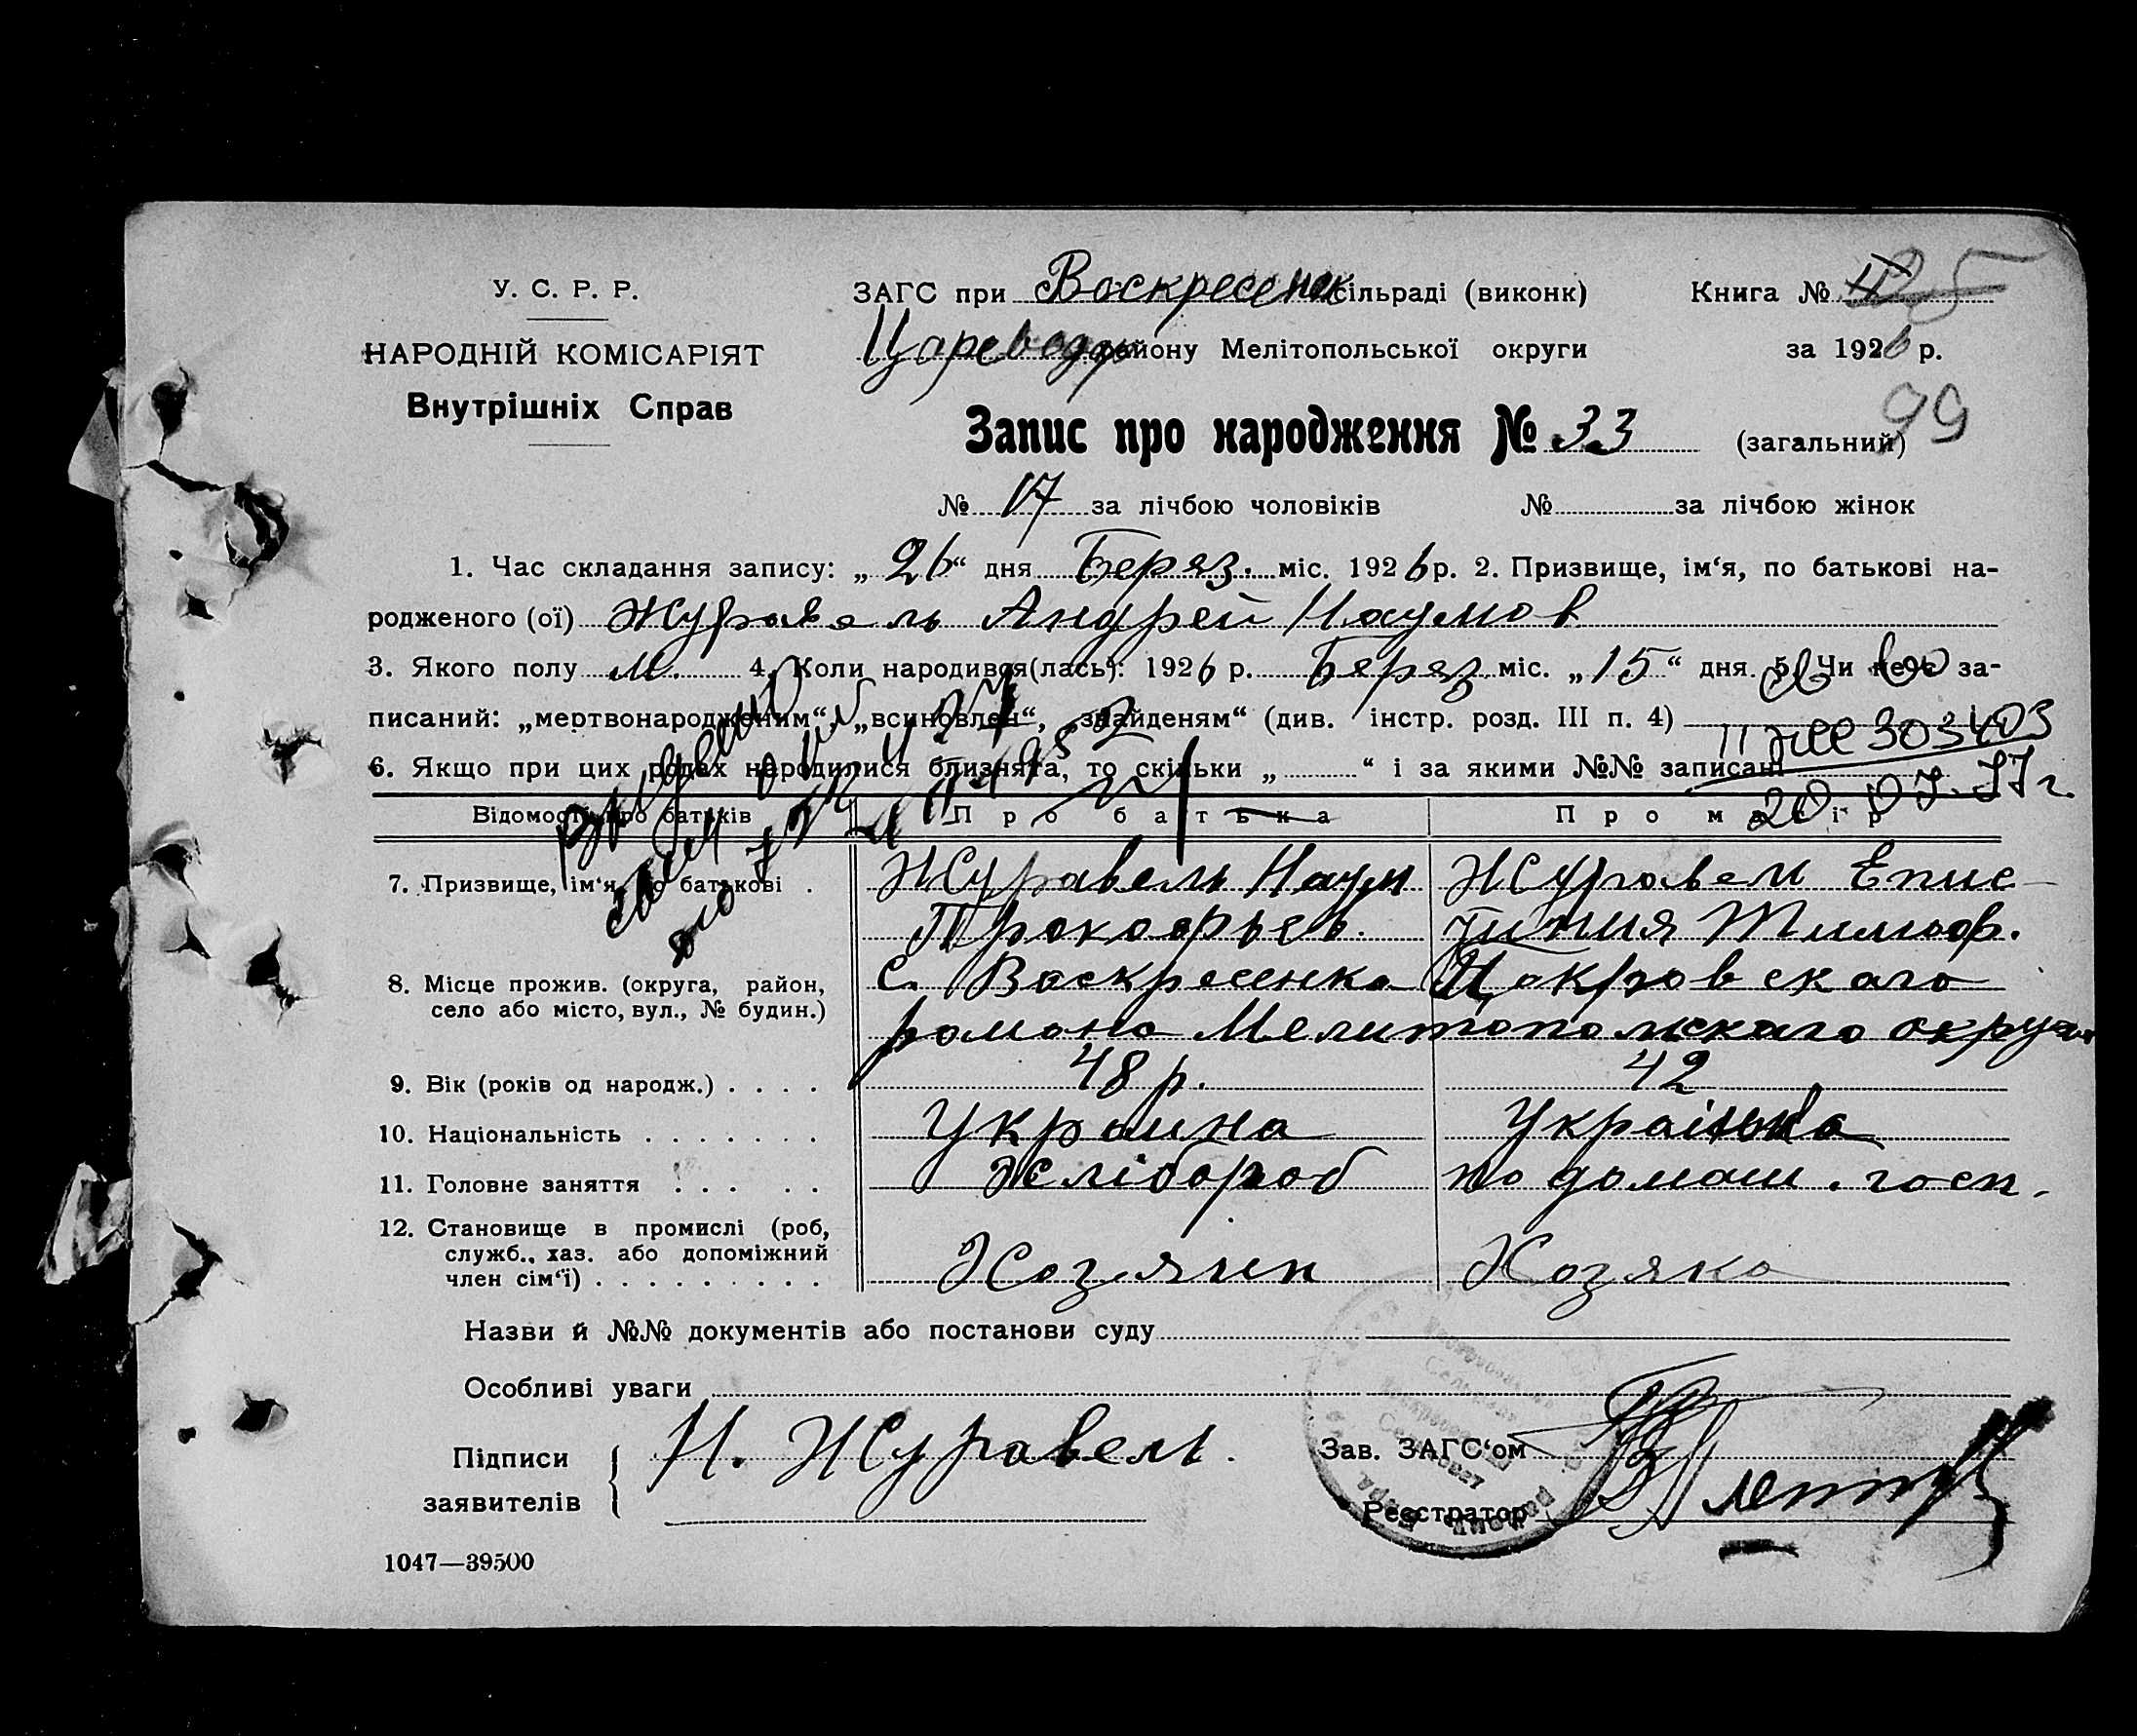 У. С. Р. Р.
НАРОДНІЙ КОМІСАРІЯТ
Внутрішніх Справ
ЗАГС при Воскресенск сільраді (виконк)
Книга №
району Мелітопольської округи
за 1926 р.
99
Запис про народження № 33 (загальний)
№ 17 за лічбою чоловіків № за лічбою жінок
1. Час складання запису: „26“ дня Берез. міс. 1926 р. 2. Призвище, ім‘я, по батькові на-
родженого (ої) Журавель Андрей Наумов
3. Якого полу м. 4. Коли народився(лась): 1926 р. Берез. міс. „15“ дня. 5. Чи не є за-
писаний: „мертвонародженим“, „всиновлен“, „знайденям“ (див. інстр. розд. III п. 4)
303403
6. Якщо при цих родах народилися близнята, то скільки „ “ і за якими №№ записані
20 07. 77 г.
Відомості про батьків Про батька Про матір
7. Призвище, ім‘я, по батькові . Журавель Наум Журавель Епис-
Прокофьев. тимия Тимоф.
8. Місце прожив. (округа, район, село або місто, вул., № будин.)
с. Воскресенка Покровскаго
района Мелитопольскаго округа
9. Вік (років од народж.) . . . . 48 р. 42
10. Національність . . . . . . . Украина Українка
11. Головне заняття . . . . . Хлібороб по домаш. госп.
12. Становище в промислі (роб,
служб., хаз. або допоміжний
член сім‘ї) . . . . . . . . . Хозяин Хозяка
Назви й №№ документів або постанови суду
Особливі уваги
Підписи
заявителів
Н. Журавель.
Зав. ЗАГС‘ом
Реєстратор
1047—39500